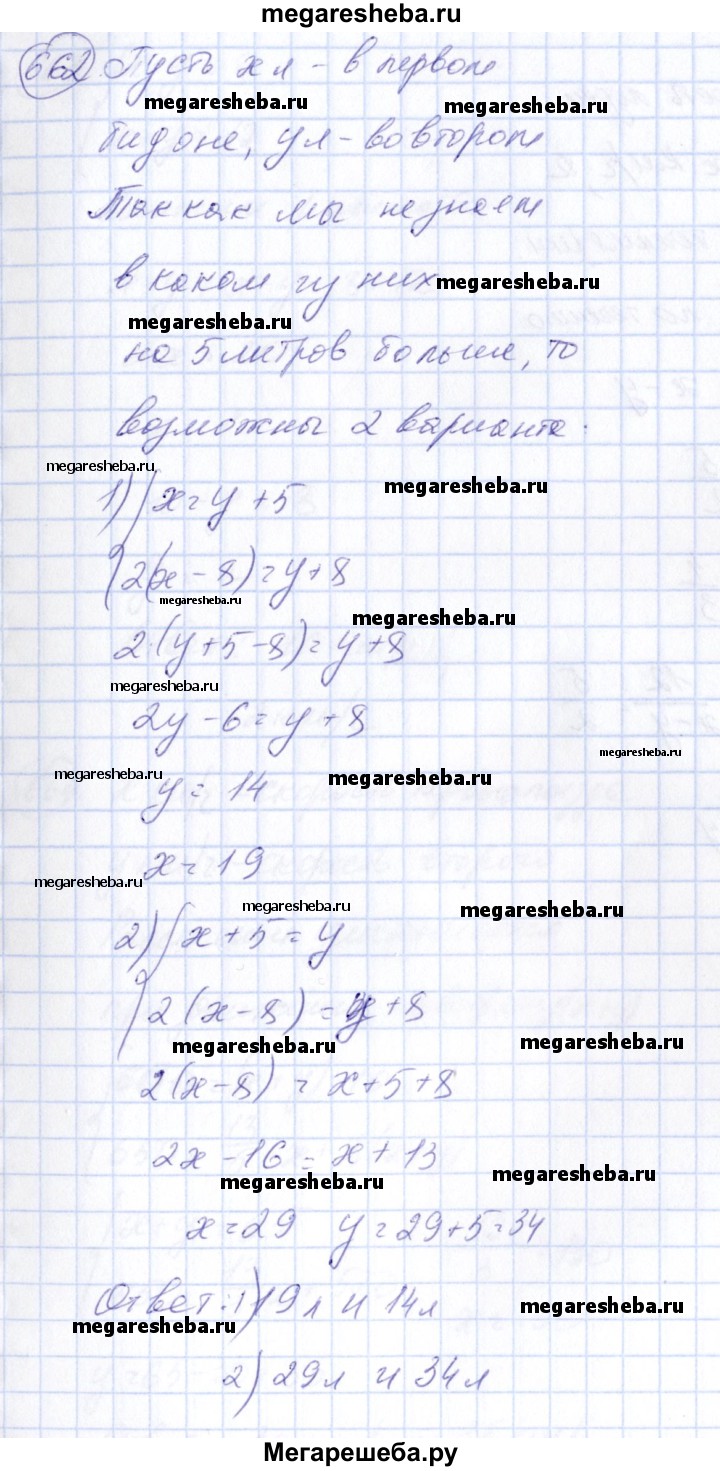 megaresheba.ru
662 Пусть x л - в первом
megaresheba.ru megaresheba.ru
бидоне, y л - во втором
Так как мы не знаем
в каком из них megaresheba.ru
megaresheba.ru
на 5 литров больше, то
возможны 2 варианта.
megaresheba.ru megaresheba.ru
1) { x = y + 5
2(x - 8) = y + 8
megaresheba.ru megaresheba.ru
2·(y + 5 - 8) = y + 8
megaresheba.ru
2y - 6 = y + 8
megaresheba.ru
megaresheba.ru megaresheba.ru
y = 14
x = 19
megaresheba.ru megaresheba.ru megaresheba.ru
2) { x + 5 = y
2(x - 8) = y + 8
megaresheba.ru megaresheba.ru
2(x - 8) = x + 5 + 8
2x - 16 = x + 13
megaresheba.ru megaresheba.ru
x = 29 y = 29 + 5 = 34
Ответ: 1) 19 л и 14 л
megaresheba.ru megaresheba.ru
2) 29 л и 34 л
Мегарешеба.ру